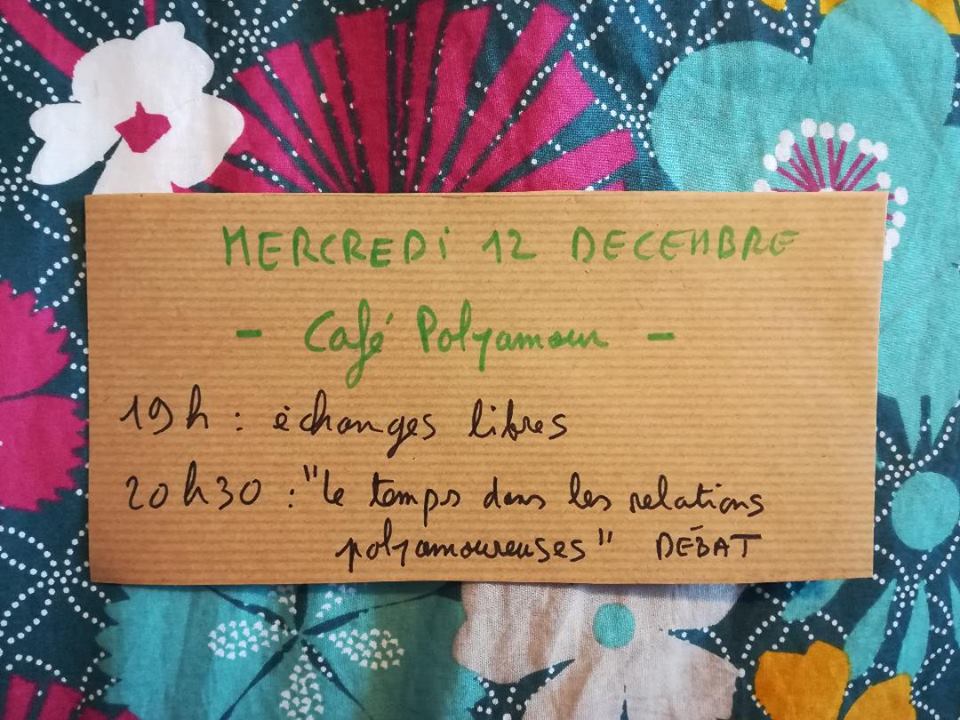 MERCREDi 12 DECEMBRE
- Café Polyamour -
19h : échanges libres
20h30 : "le temps dans les relations
polyamoureuses" DÉBAT